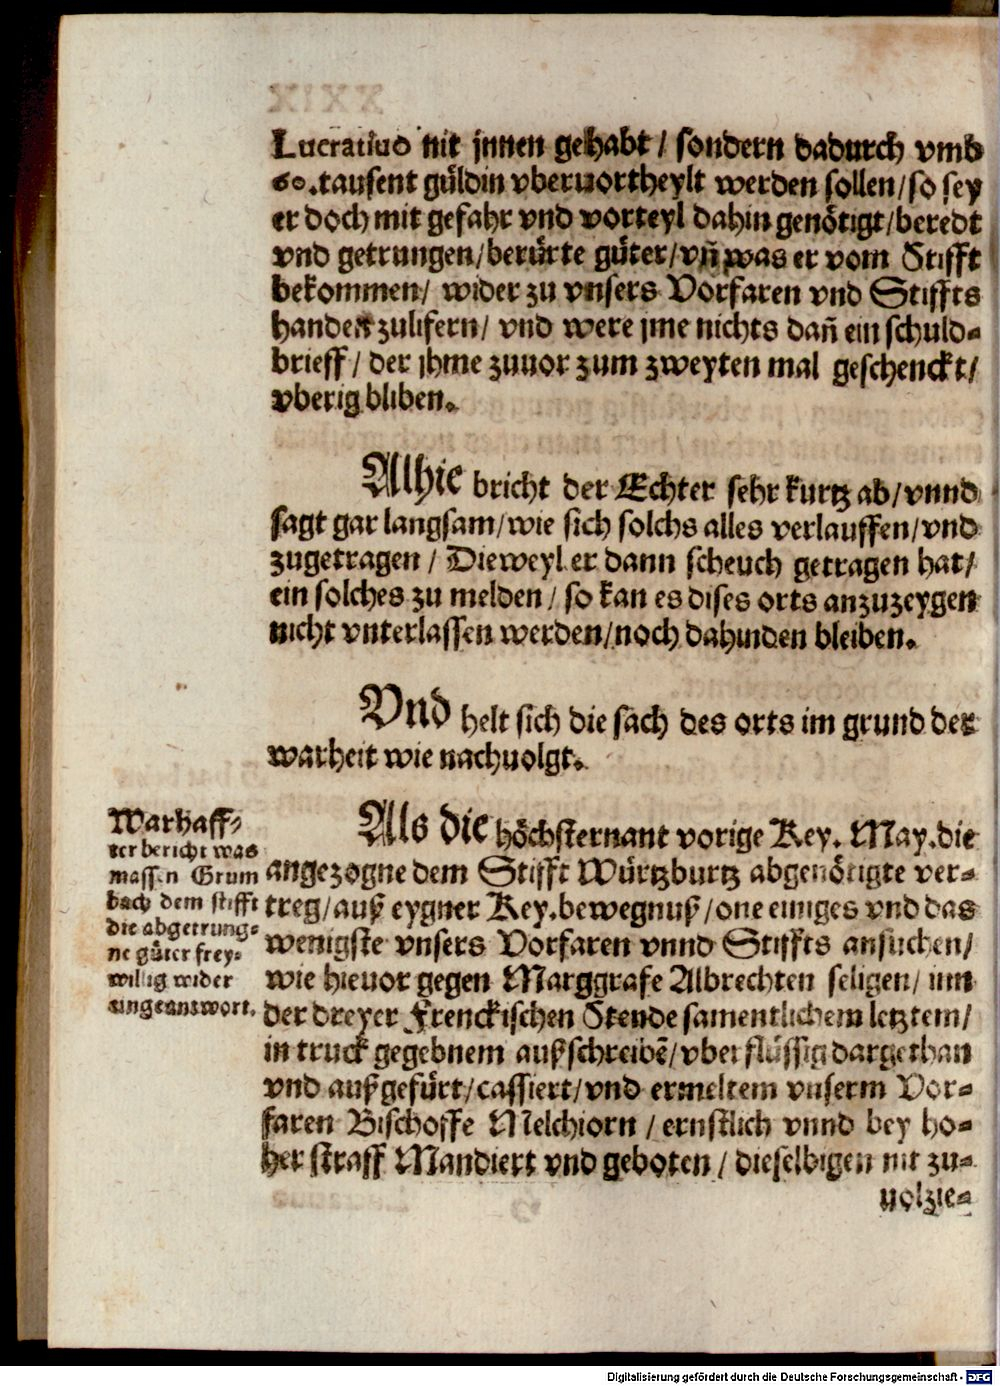 Lucratiuo nit jnnen gehabt / sondern dadurch vmb
60.tausent güldin vberuortheylt werden sollen/so sey
er doch mit gefahr vnd vorteyl dahin genötigt/beredt
vnd getrungen/berürte güter/vñ was er vom Stifft
bekommen/ wider zu vnsers Vorfaren vnd Stiffts
handen zulifern/ vnd were jme nichts dañ ein schuld-
brieff/ der jhme zuuor zum zweyten mal geschenckt/
vberig bliben.
Alhie bricht der Echter sehr kurtz ab/vnnd
sagt gar langsam/wie sich solchs alles verlauffen/vnd
zugetragen/ Dieweyl er dann scheuch getragen hat/
ein solches zu melden/ so kan es dises orts anzuzeygen
nicht vnterlassen werden/noch dahinden bleiben.
Vnd helt sich die sach des orts im grund der
warheit wie nachuolgt.
Warhaff-
ter bericht was
massen Grum
bach dem stifft
die abgetrung-
ne güter frey-
willig wider
eingeantwort.
Als die höchsternant vorige Key. May. die
angezogne dem Stifft Würtzburtz abgenötigte ver-
treg/auß eygner Key. bewegnuß/one einiges vnd das
wenigste vnsers Vorfaren vnnd Stiffts ansuchen/
wie hieuor gegen Marggrafe Albrechten seligen/ inn
der dreyer Frenckischen Stende samentlichem letztem/
in truck gegebnem außschreibē/vberflüssig dargethan
vnd außgefürt/cassiert/vnd ermeltem vnserm Vor-
faren Bischoffe Melchiorn / ernstlich vnnd bey ho-
her straff Mandiert vnd geboten/ dieselbigen nit zu-
uolzie-
Digitalisierung gefördert durch die Deutsche Forschungsgemeinschaft - DFG